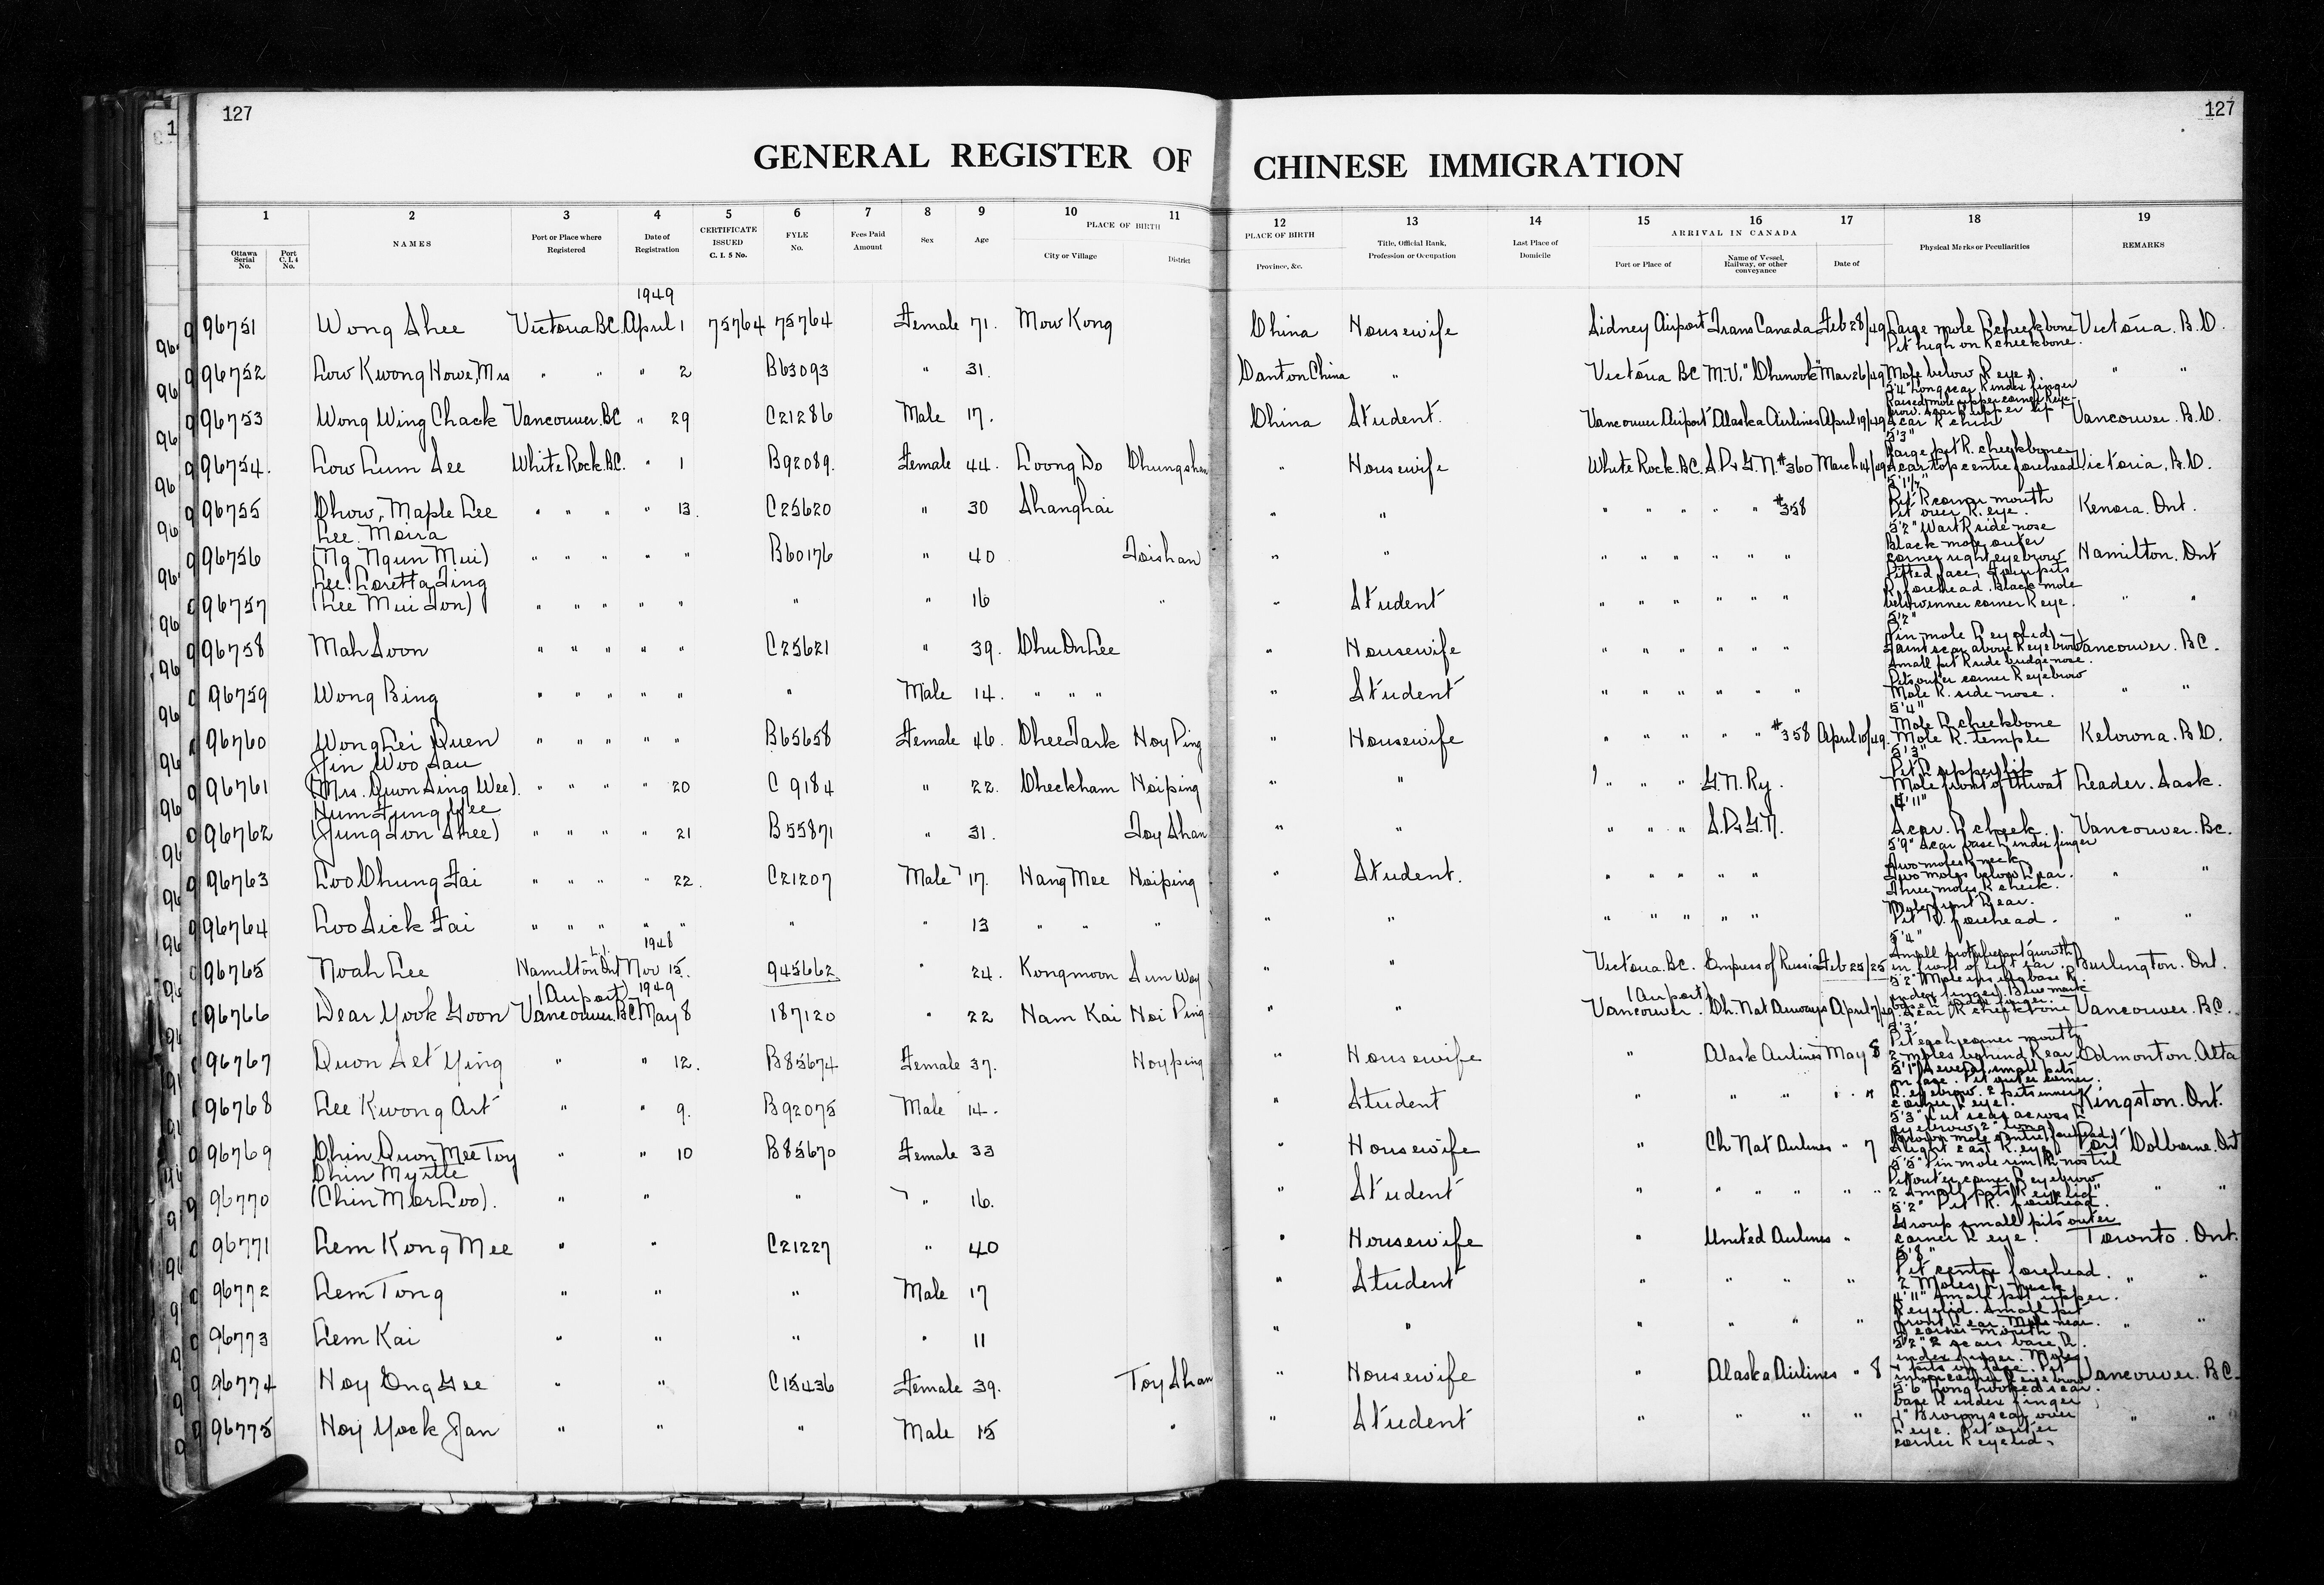 127
127
GENERAL REGISTER OF CHINESE IMMIGRATION
1 2 3 4 5 6 7 8 9 10 11 12 13 14 15 16 17 18 19
Ottawa Serial No.
Port C.I.4 No.
NAMES
Port or Place where Registered
Date of Registration
CERTIFICATE ISSUED C. I. 5 No.
FYLE No.
Fees Paid Amount
Sex
Age
PLACE OF BIRTH
City or Village
District
PLACE OF BIRTH
Province, &c.
Title, Official Rank, Profession or Occupation
Last Place of Domicile
ARRIVAL IN CANADA
Port or Place of
Name of Vessel, Railway, or other conveyance
Date of
Physical Marks or Peculiarities
REMARKS
1949
96751 Wong Shee Victoria BC. April 1 75764 75764 Female 71. Mow Kong China Housewife Sidney Airport Trans Canada Feb 28/49 Large mole L cheekbone Pit high on R cheekbone. Victoria. B.C.
96752 Low Kwong Howe, Mrs " " " 2 B63093 " 31. Canton China " Victoria BC M.V. "Chinook" Mar 26/49 Mole below R eye. " "
96753 Wong Wing Chack Vancouver. BC " 29 C21286 Male 17. China Student. Vancouver Airport Alaska Airlines April 19/49 5'4" Long scar R index finger Scar R chin Vancouver. B.C.
96754. Low Lum See White Rock. BC. " 1 B92089. Female 44. Loong Do Chungshan " Housewife White Rock. BC. S.P. & G.N. #360 March 14/49 5'3" Large pit R. cheekbone Scar top centre forehead Victoria, B.C.
96755 Chow, Maple Lee " " " " 13. C25620 " 30 Shanghai " " " " " " " #358 Pit R corner mouth Pit over R. eye. Kenora. Ont.
96756 Lee. Moira (Ng Ngun Mui) " " " " " B60176 " 40 Toishan " " " " " " " " 5'2" Wart R side nose Black mole outer corner right eyebrow Hamilton. Ont
96757 Lee. Loretta Jing (Lee Mui Jon) " " " " " " " 16 " " Student " " " " " " Pitted face, Four pits R forehead. Black mole below inner corner R eye. " "
96758 Mah Soon " " " " " C25621 " 39. Chu On Lee " Housewife " " " " " " 5'2" Pin mole L eyelid Faint scar above R eyebrow Small pit R side bridge nose. Vancouver. BC.
96759 Wong Bing " " " " " " Male 14. " " " " Student " " " " " " Pits outer corner R eyebrow Mole R. side nose. " "
96760 Wong Lei Quen " " " " " B65658 Female 46. Chee Tark Hoy Ping " Housewife " " " " " #358 April 10/49. 5'4" Mole L cheekbone Mole R. temple Kelowna. B.C.
96761 Jin Woo Sau (Mrs. Quon Sing Wee). " " " " 20 C 9184 " 22. Checkham Hoiping " " " " " G.N. Ry. 5'3" Pit L upper lip Mole front of throat Leader. Sask.
96762 Hum Jung Yee (Jung Jon Shee) " " " " 21 B55871 " 31. Toy Shan " " " " " S.P. & G.N. 4'11" Scar. L cheek. Vancouver. BC.
96763 Loo Chung Fai " " " " 22. C21207 Male 17. Hang Mee Hoiping " Student. " " " " " 5'9" Scar base L index finger Two moles neck Two moles below L ear. Three moles R cheek. " "
96764 Loo Sick Fai " " " " " " " 13 " " " " " " " " " " Mole front L ear. Pit R. forehead. " "
1948
96765 Noah Lee Hamilton Ont Nov 15. 945662 " 24. Kongmoon Sun Woy " " Victoria. BC. Empress of Russia Feb 25/25 5'4" Small growth in front of left ear. Burlington. Ont.
(Airport) 1949
96766 Dear Yook Goon Vancouver. BC May 8 187120 " 22 Ham Kai Hoi Ping " " (Airport) Vancouver. Ch. Nat Airways April 7/49 Scar R cheekbone Vancouver. B.C.
96767 Quon Set Ying " " 12. B85674 Female 37. Hoyping " Housewife " Alask Airlines May 8 5'3" Pit each corner mouth 2 moles behind R ear Edmonton. Alta
96768 Lee Kwong Art " " 9. B92075 Male 14. " Student " " " " " 5'1" Several small pits on face. Pit outer corner R. eyebrow. 2 pits inner corner L eye. Kingston. Ont.
96769 Chin Quon Mee Toy " " 10 B85670 Female 33 " Housewife " Ch Nat Airlines " 7 5'3" Cut scar across L eyebrow, 2" long. Port Colborne. Ont
96770 Chin Myrtle (Chin Mor Loo). " " " " 16. " Student " " " " " " 5'5" Pin mole rim R nostril Pit outer corner R eyebrow 2 small pits R eyelid " "
96771 Lem Kong Mee " " C21227 " 40 " Housewife " United Airlines " 5'2" Pit R. forehead. Group small pits outer corner L eye. Toronto. Ont.
96772 Lem Tong " " " Male 17 " Student " " " " 5'8" Pit centre forehead. 2 Moles L neck " "
96773 Lem Kai " " " " 11 " " " " " " 4'11" Small pit upper R eyelid. Small pit front L ear. Mole near corner mouth " "
96774 Hoy Ong Gee " " C15436 Female 39. Toy Shan " Housewife " Alaska Airlines " 8 5'2" 2 scars base R. index finger. Vancouver. BC.
96775 Hoy Yock Jan " " " Male 15 " " Student " " " " 5'6" Long hooked scar base R index finger 1" Brown scar over L eye. Pit outer corner R eyelid. " "